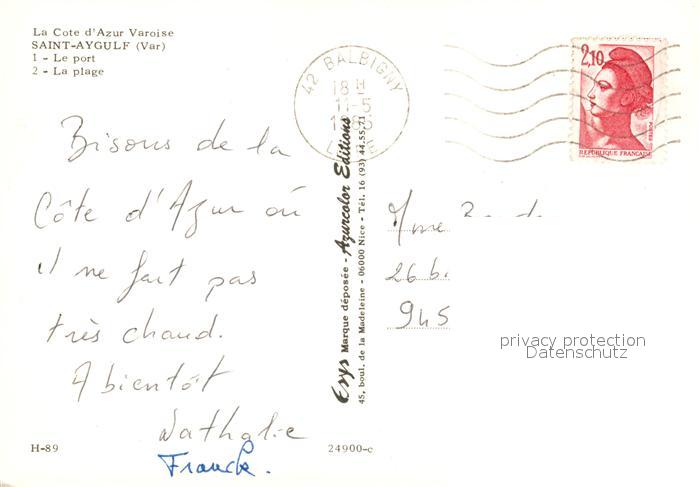 La Cote d'Azur Varoise
SAINT-AYGULF (Var)
1 - Le port
2 - La plage
42 BALBIGNY
18 H
11-5
LOIRE
2,10
POSTES
REPUBLIQUE FRANCAISE
Bisous de la
Côte d'Azur où
il ne fait pas
très chaud.
A bientôt
Nathalie
Franck.
Esys Marque déposée - Azurcolor Editions
45, boul. de la Madeleine - 06000 Nice - Tél. 16 (93) 44.55.71
Mme
26 b.
945
privacy protection
Datenschutz
H-89
24900-c